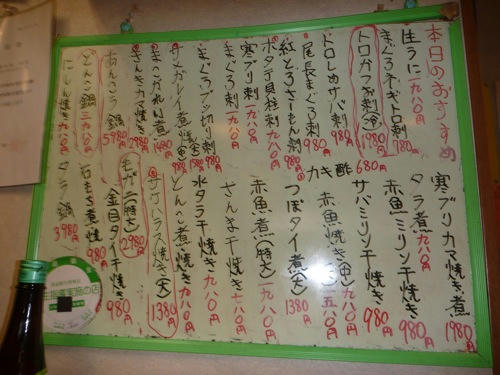 本日のおすすめ
生うに 一九八〇円
まぐろネギトロ刺 980円
トロかつお刺 1980円
トロしめサバ刺 980円
尾長まぐろ刺 980円
紅とろさーもん刺 980円
ホタテ貝柱刺 九八〇円
寒ブリ刺 一九八〇円
まぐろ刺 九八〇円
まぐろブツ切り刺 980円
サガレイ煮焼
まこがれい煮 1480円
きんきカマ焼き 2980円
あんこう鍋 5980円
どんこ鍋 三九八〇円
にしん焼き 九八〇円
カキ酢 680円
寒ブリカマ焼き煮 1980円
タラ煮 九八〇円
赤魚ミリン干焼き 980円
サバミリン干焼き 980円
赤魚焼き(中)九八〇円
つぼタイ煮(大)1380円
赤魚煮(特大)一九八〇円
さんま干焼き 七八〇円
水タラ干焼き 九八〇円
どんこ煮焼き 九八〇円
ササハラス焼き(大)1380円
毛ガニ(特大)2980円
金目タイ干焼き 980円
石もち煮焼き 980円
タラ鍋 3980円